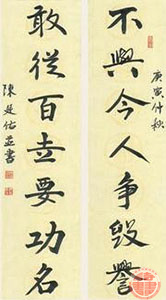 庚寅仲秋
不與今人争毁譽
敢從百世要功名
陳廷佑並書